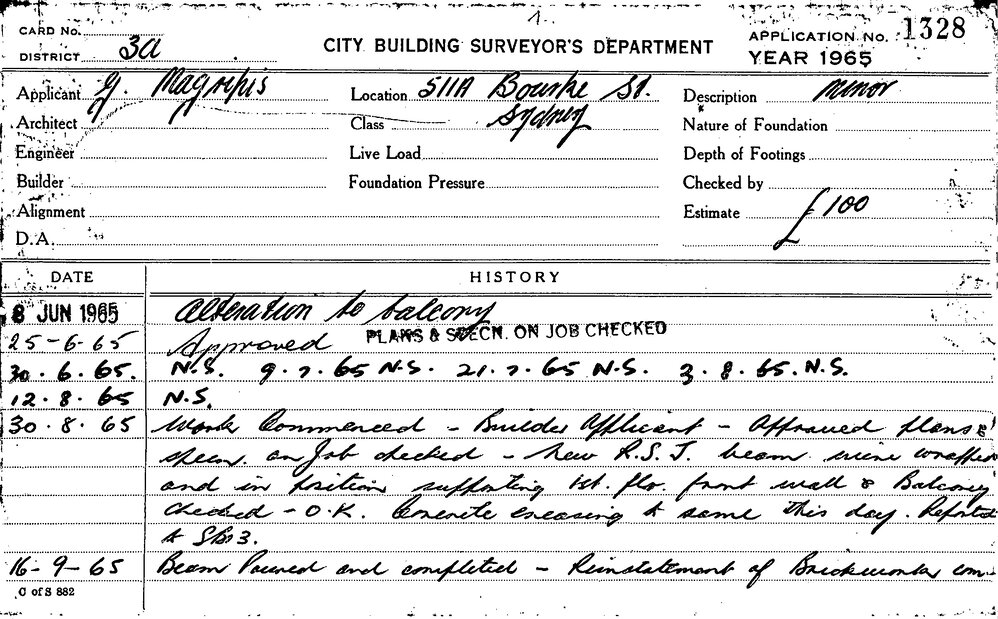 1.
CARD No.
DISTRICT 3a
CITY BUILDING SURVEYOR'S DEPARTMENT
APPLICATION No. 1328
YEAR 1965
Applicant G.
Location 511A Bourke St.
Sydney
Description minor
Architect
Class
Nature of Foundation
Engineer
Live Load
Depth of Footings
Builder
Foundation Pressure
Checked by
Alignment
Estimate £100
D.A.
DATE
HISTORY
8 JUN 1965 Alteration to balcony
PLANS & SPECN. ON JOB CHECKED
25-6-65 Approved
30.6.65. N.S. 9.7.65 N.S. 21.7.65 N.S. 3.8.65. N.S.
12.8.65 N.S.
30.8.65 Work Commenced - Builder Applicant - Approved plans &
specn. on Job checked - New R.S.J. beam wire wrapped
and in position supporting 1st. flr. front wall & Balcony
checked - O.K. Concrete encasing to same this day. Reported
to SBS3.
16-9-65 Beam Poured and completed - Reinstatement of Brickwork
C of S 882